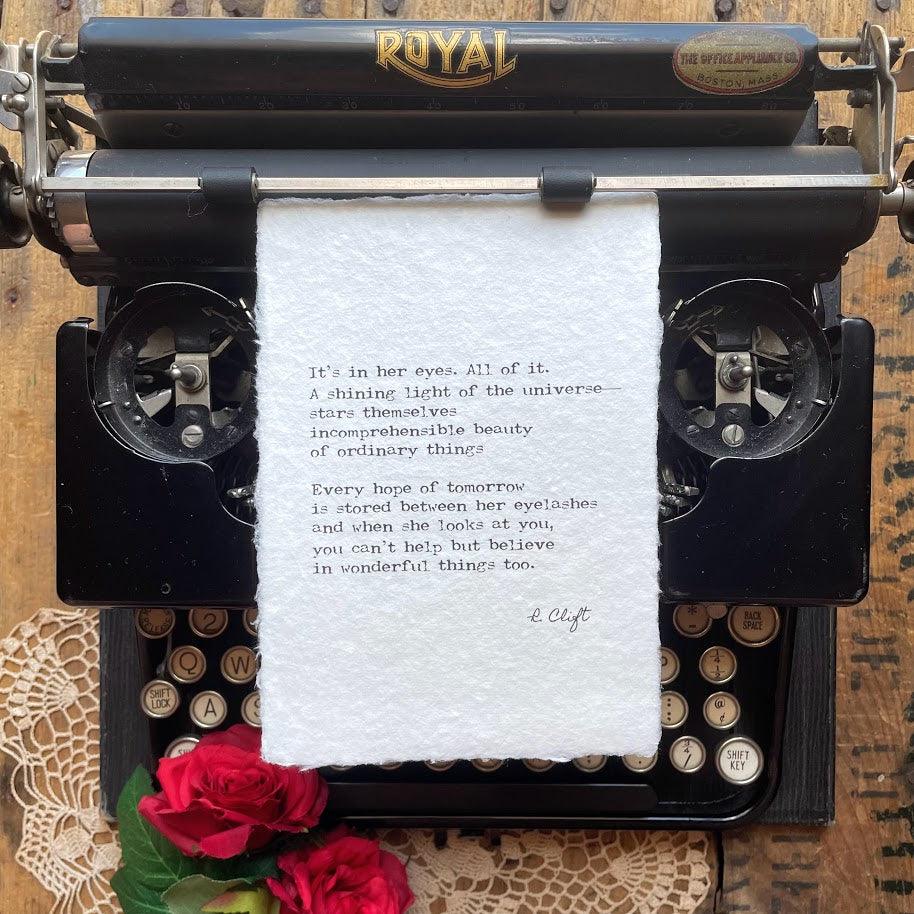 ROYAL
THE OFFICE APPLIANCE CO.
BOSTON, MASS.
10 20 30 40 50 60 70 80
It's in her eyes. All of it.
A shining light of the universe—
stars themselves
incomprehensible beauty
of ordinary things
Every hope of tomorrow
is stored between her eyelashes
and when she looks at you,
you can't help but believe
in wonderful things too.
R. Clift
2 * BACK SPACE
Q W P 1/4 1/2
SHIFT LOCK A S : ; @ ¢
3/4 / SHIFT KEY